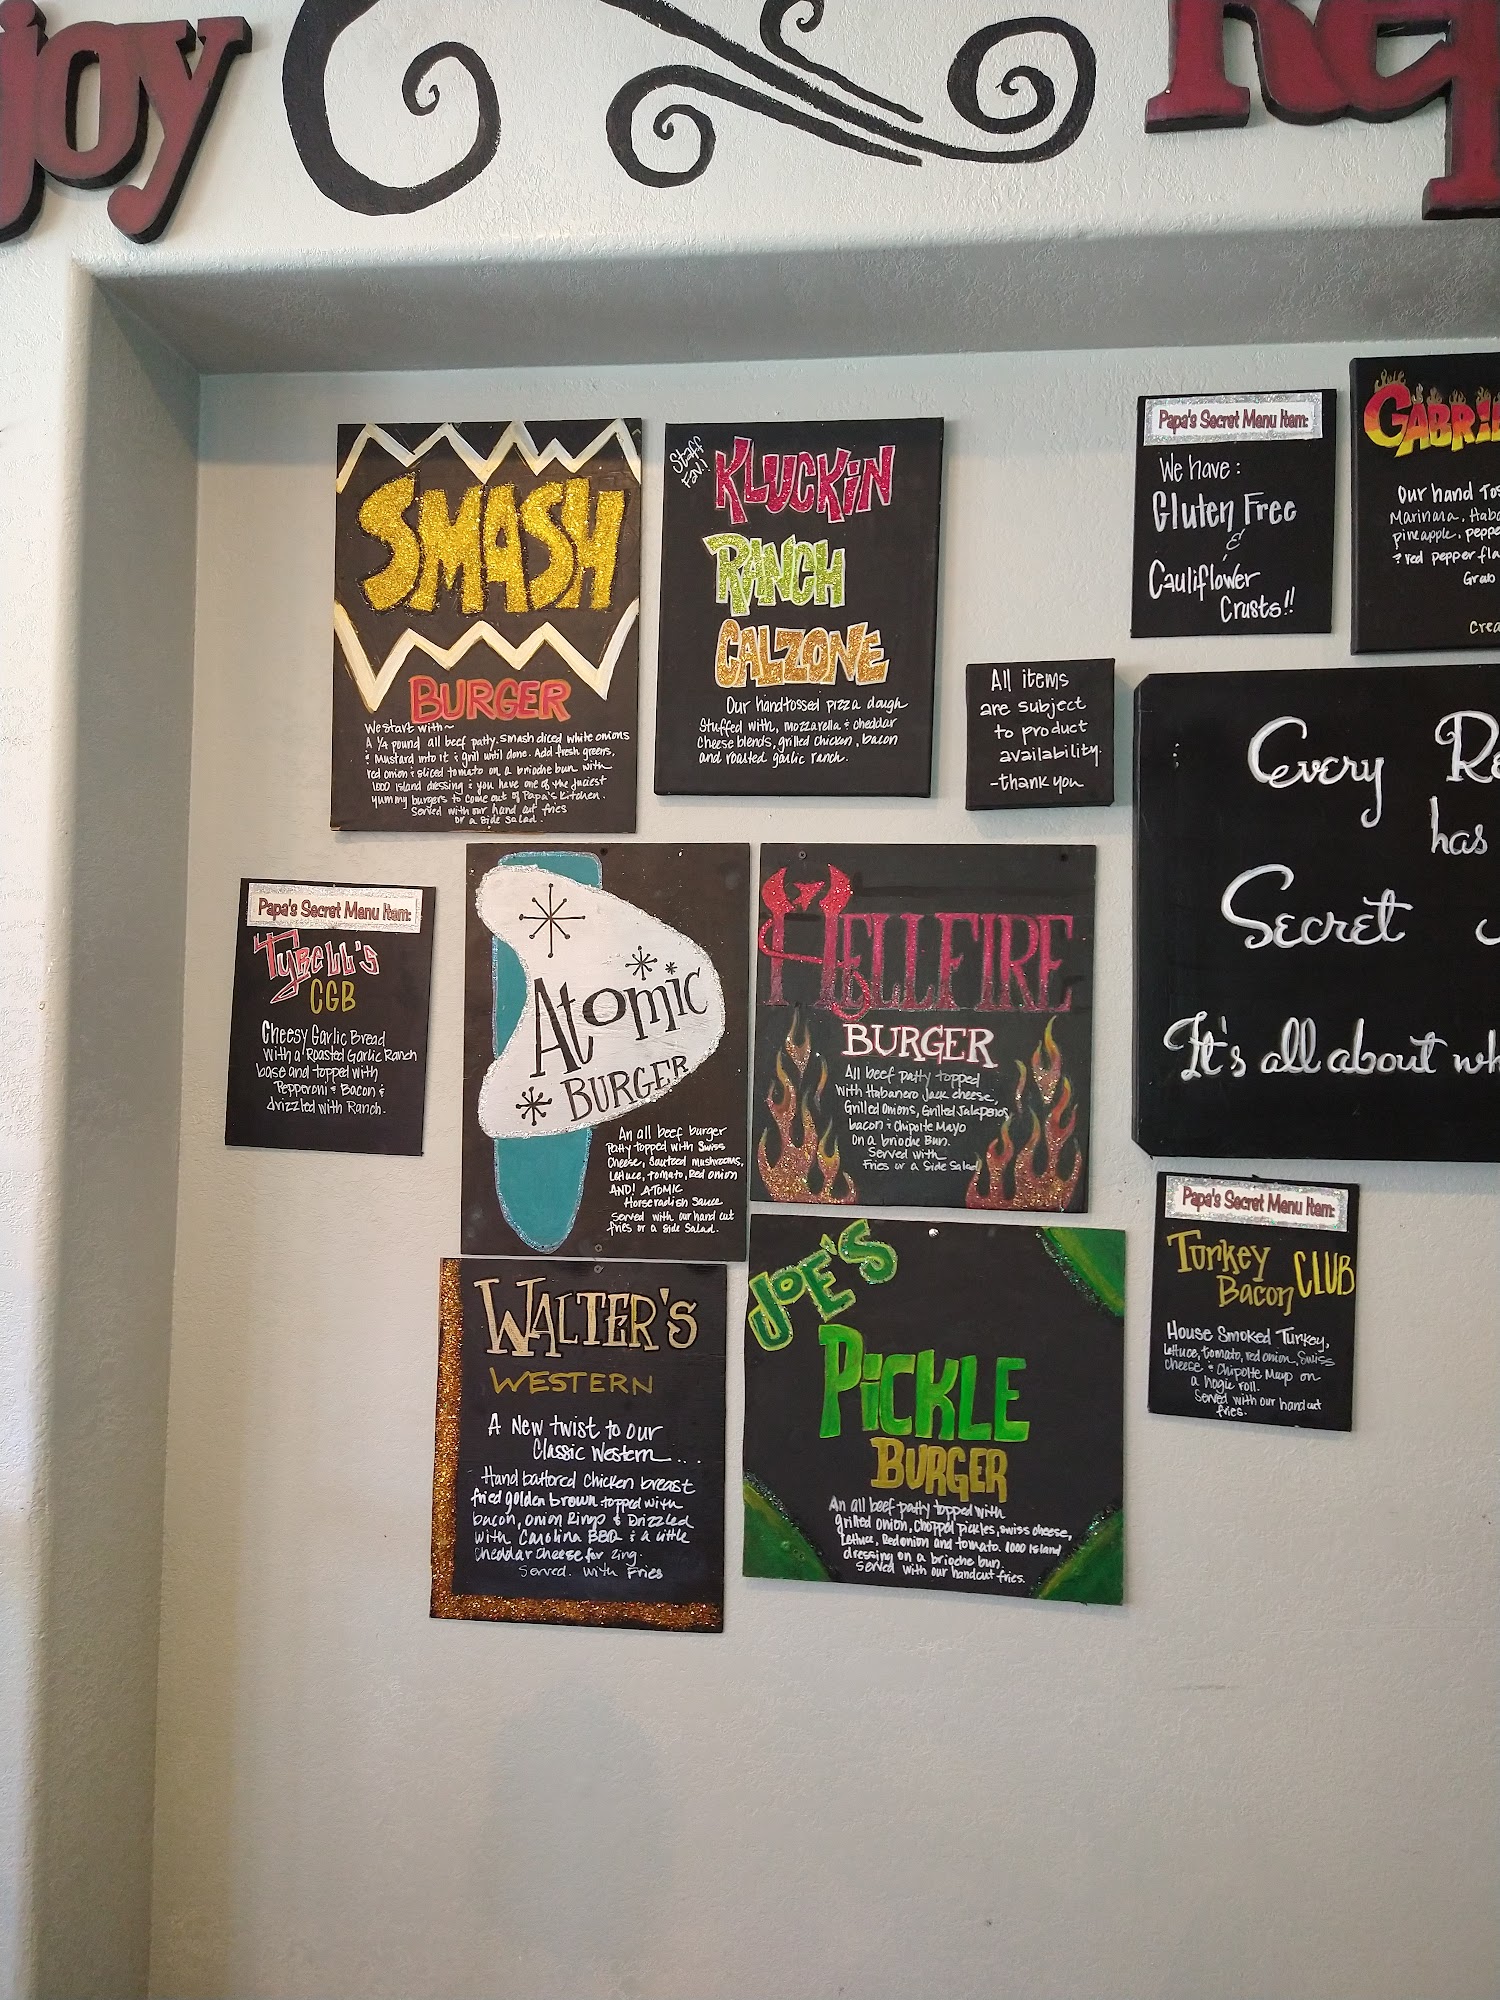 joy
SMASH
BURGER
We start with~
A 1/4 pound all beef patty. Smash diced white onions
& Mustard into it & grill until done. Add fresh greens,
red onion & sliced tomato on a brioche bun with
1000 Island dressing & you have one of the juciest
yummy burgers to come out of Papa's Kitchen.
Served with our hand cut fries
or a side salad.
Staff
Fav!
KLUCKiN
RANCH
CALZONE
Our handtossed pizza dough
Stuffed with, mozzarella & cheddar
Cheese blends, grilled chicken, bacon
and roasted garlic ranch.
All items
are subject
to product
availability.
-thank you
Papa's Secret Menu Item:
We have:
Gluten Free
&
Cauliflower
Crusts!!
Our hand
Marinara,
pineapple,
& red pepper
Grab
Every
has
Secret
It's all about
Papa's Secret Menu Item:
Tyrell's
CGB
Cheesy Garlic Bread
with a Roasted Garlic Ranch
base and topped with
Pepperoni & Bacon &
drizzled with Ranch.
Atomic
BURGER
An all beef burger
Patty topped with Swiss
Cheese, Sauteed mushrooms,
Lettuce, tomato, Red onion
AND! ATOMIC
Horseradish Sauce
Served with our hand cut
fries or a side Salad.
HELLFIRE
BURGER
All beef patty topped
with Habanero Jack cheese,
Grilled Onions, Grilled Jalapenos,
bacon & Chipotle Mayo
on a brioche Bun.
Served with
Fries or a Side Salad
WALTER'S
WESTERN
A New twist to our
Classic Western...
Hand battored chicken breast
fried golden brown topped with
bacon, onion Rings & Drizzled
with Carolina BBQ & a little
cheddar cheese for zing.
Served. With Fries
JOE'S
PiCKLE
BURGER
An all beef patty topped with
grilled onion, chopped pickles, swiss cheese,
Lettuce, Red onion and tomato. 1000 Island
dressing on a brioche bun.
Served with our handcut fries.
Papa's Secret Menu Item:
Turkey
Bacon CLUB
House Smoked Turkey,
lettuce, tomato, red onion, Swiss
cheese & Chipotle Mayo on
a hogie roll.
Served with our hand cut
fries.